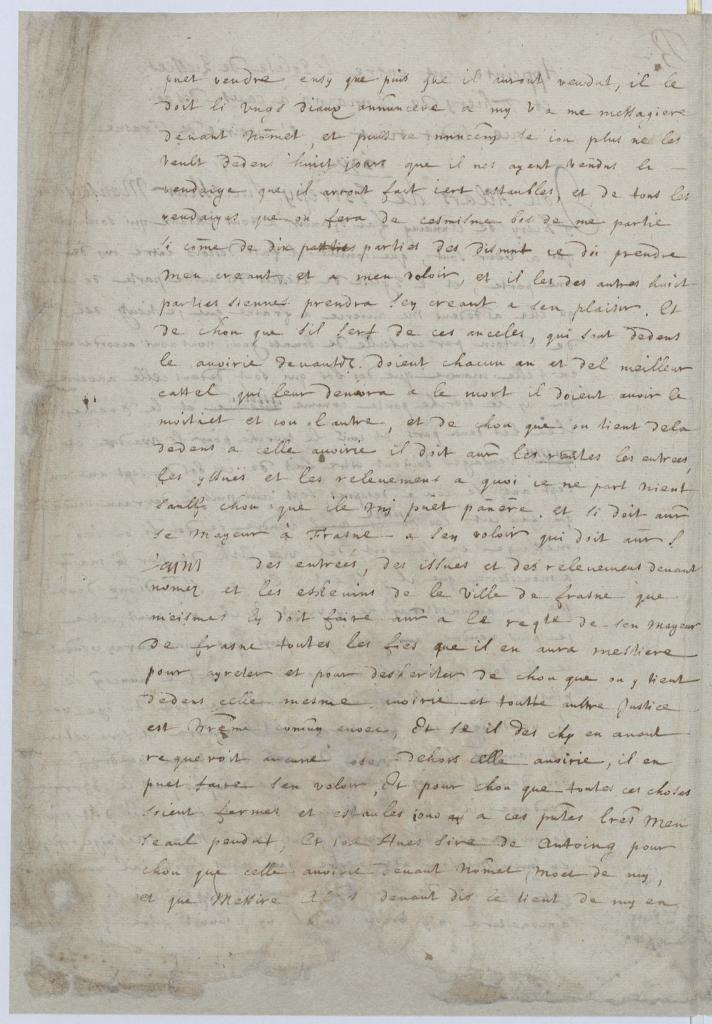 puet vendre ensy que puis que il auront vendut, il le
doit li ungs diaux annuncere a my v a me messagiere
devant nomet, et puis se iou plus ne les
veult deden huict jours que il nes ayent vendus le
vendaige que il arront fait iert estaubles, et de tous les
vendaiges que on fera de cesmisme bos de me partie
si come de dix parties des dismnt ie doi prendre
men creant et a men voloir, et il les des autres huict
parties siennes prendra sen creant a sen plaisir. Et
de chou que sil serf de ces anceles, qui sont dedens
le avoirie devantd. doient chacun an et del meilleur
cattel qui leur demora a le mort il doient avoir le
moitiet et iou l'autre, et de chou que on tient dela
dedens a celle avoirie il doit aur les rentes les entrees,
les yssues et les relevemens a quoi ie ne part nient
saulf chou que ile ny puet. et si doit aur
se mayeur à Frasne a sen voloir qui doit aur
des entrees, des issues et des relevemens devant
nomez et les eschevins de le ville de frasne que
meismes doit faire aur a le regte de sen mayeur
de frasne toutes les fies que il en aura mestiere
pour ayreter et pour desheriter de chou que on y tient
dedens celle mesme avoirie et toutte aultre Justice
est et se il des en avant
requeroit aucune ose dehors celle avoirie, il en
puet faire sen voloir, Et pour chou que toutes ces choses
soient fermes et estaules iou a ces pntes lres men
seaul pendut, Et iou Hues sire de Antoing pour
chou que celle avoirie devant nomet moet de my,
et que Messire devant dis le tient de my en